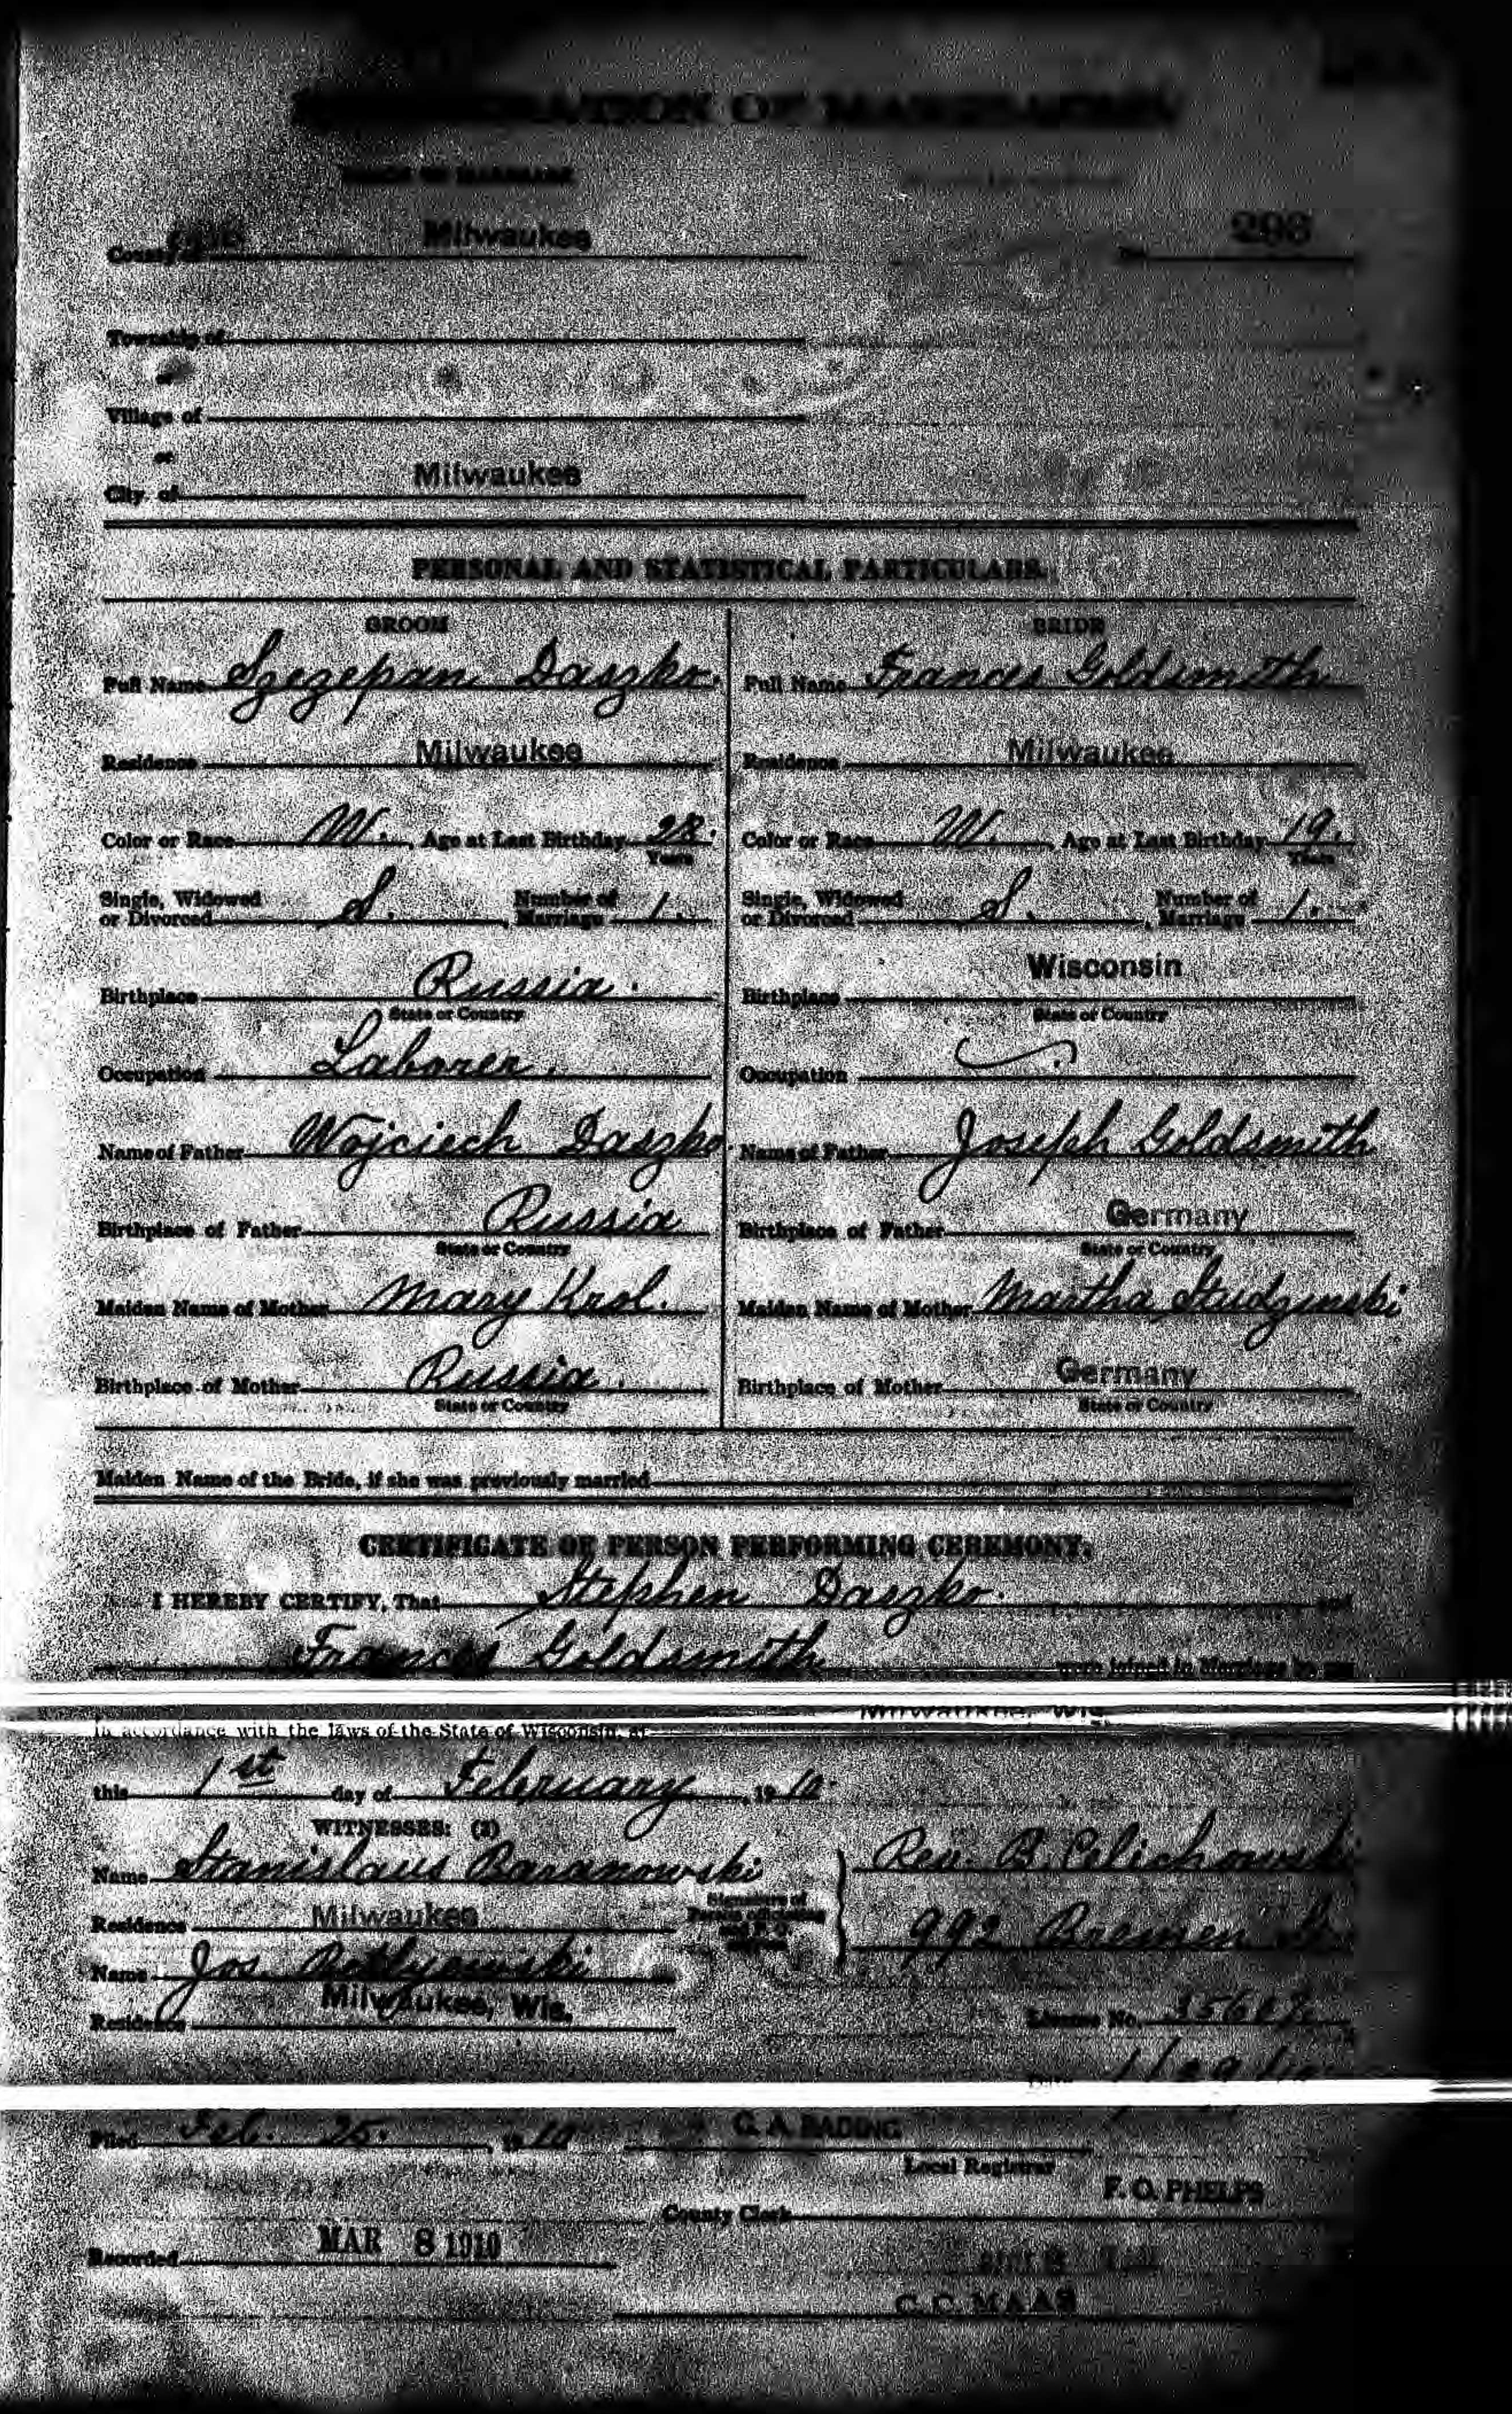 OF MARRIAGE
PLACE OF MARRIAGE
County of Milwaukee No. 293
Township of
or
Village of
or
City of Milwaukee
PERSONAL AND STATISTICAL PARTICULARS.
GROOM BRIDE
Full Name Szczepan Daszko. Full Name Frances Goldsmith
Residence Milwaukee Residence Milwaukee
Color or Race W. , Age at Last Birthday 28. Color or Race W. , Age at Last Birthday 19.
Years Years
Single, Widowed Number of Single, Widowed Number of
or Divorced S. , Marriage 1. or Divorced S. , Marriage 1.
Birthplace Russia. Birthplace Wisconsin
State or Country State or Country
Occupation Laborer. Occupation
Name of Father Wojciech Daszko. Name of Father Joseph Goldsmith
Birthplace of Father Russia Birthplace of Father Germany
State or Country State or Country
Maiden Name of Mother Mary Krol. Maiden Name of Mother Martha Studzinski
Birthplace of Mother Russia. Birthplace of Mother Germany
State or Country State or Country
Maiden Name of the Bride, if she was previously married
CERTIFICATE OF PERSON PERFORMING CEREMONY.
I HEREBY CERTIFY, That Stephen Daszko. and
Frances Goldsmith were joined in Marriage by me
in accordance with the laws of the State of Wisconsin, at Milwaukee, Wis.
this 1st day of February , 19 10.
WITNESSES: (2)
Name Stanislaus Baranowski Rev. B. Celichowski
Residence Milwaukee Signature of
Person officiating
992 Bremen St
Name Jos
Residence Milwaukee, Wis.
License No.
Filed Feb. 25. , 19 10 G. A. BADING
Local Registrar
F. O. PHELPS
County Clerk
Recorded MAR 8 1910
C. C. MAAS